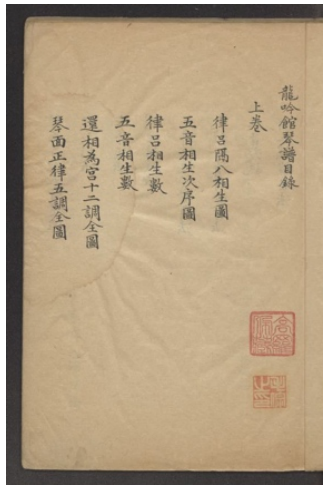 龍吟館琴譜目錄
上卷
律呂隔八相生圖
五音相生次序圖
律呂相生數
五音相生數
還相為宮十二調全圖
琴面正律五調全圖